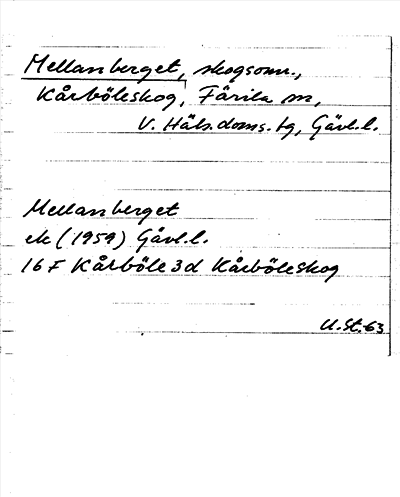 Mellanberget, skogsomr.,
Kårböleskog, Färila sn,
V. Häls. doms. tg, Gävl.l.
Mellanberget
ek (1959) Gävl.l.
16 F Kårböle 3d Kårböleskog
U.St. 63